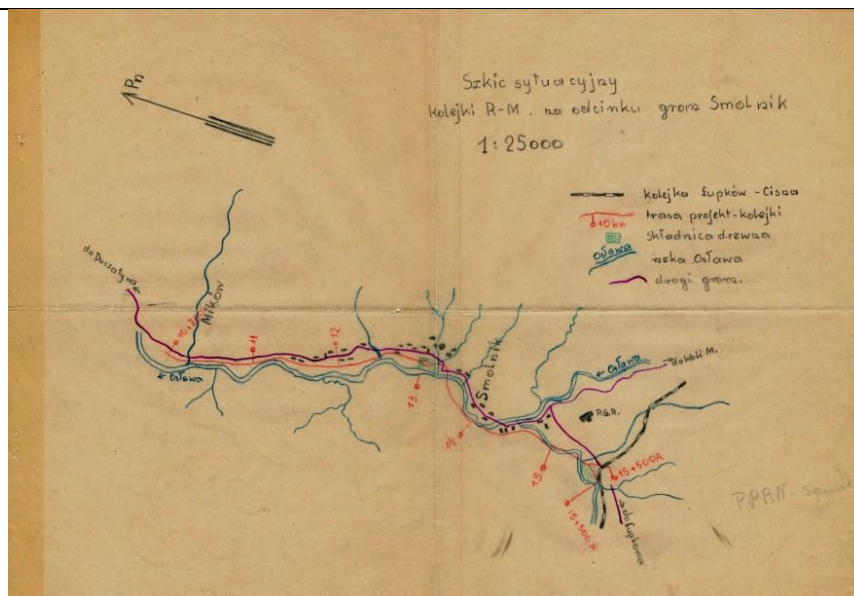 Pn
Szkic sytuacyjny
kolejki R-M. na odcinku grom Smolnik
1:25000
kolejka Łupków - Cisna
10 km trasa projekt-kolejki
składnica drewna
Osława rzeka Osława
drogi grom.
do Duszatyna
Mików
10+
11
12
Osława
13
Smolnik
14
Osława
do Woli M.
P.G.R.
15
15+500A
15+500A
do Łupkowa
PPRN -